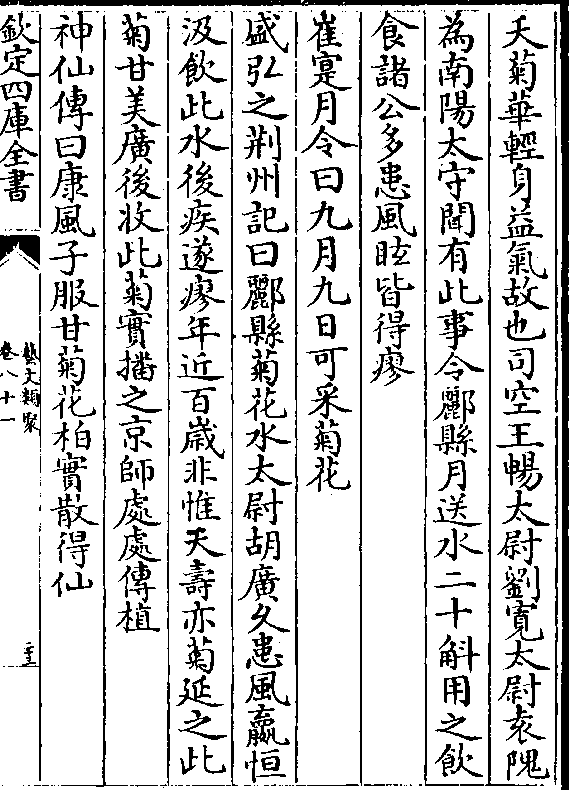 夭菊華輕身益氣故也司空王暢太尉劉寛太尉袁隗
為南陽太守聞有此事令酈縣月送水二十斛用之飲
食諸公多患風眩皆得瘳
崔寔月令曰九月九日可采菊花
盛弘之荆州記曰酈縣菊花水太尉胡廣久患風羸恒
汲飲此水後疾遂瘳年近百歲非惟天壽亦菊延之此
菊甘美廣後收此菊實播之京師處處傳植
神仙傳曰康風子服甘菊花柏實散得仙
欽定四庫全書
藝文類聚
卷八十一